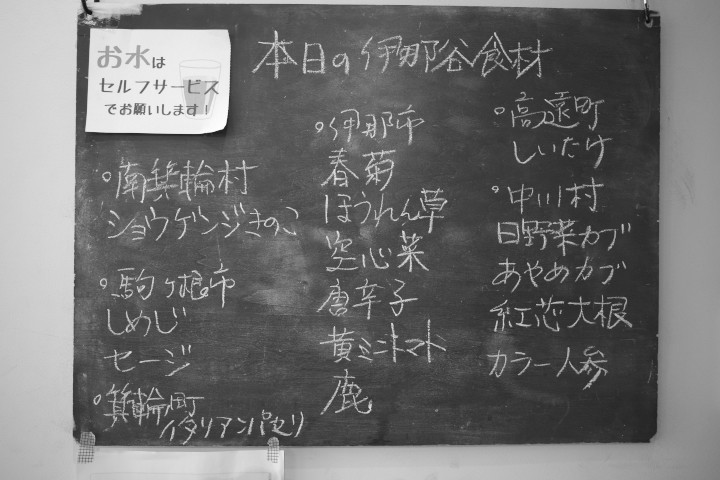 お水は
セルフサービス
でお願いします!
本日の伊那谷食材
○高遠町
しいたけ
○中川村
日野菜カブ
あやめカブ
紅芯大根
カラー人参
○伊那市
春菊
ほうれん草
空心菜
唐辛子
黄ミニトマト
鹿
○南箕輪村
ショウゲンジきのこ
○駒ヶ根市
しめじ
セージ
○箕輪町
イタリアンパセリ